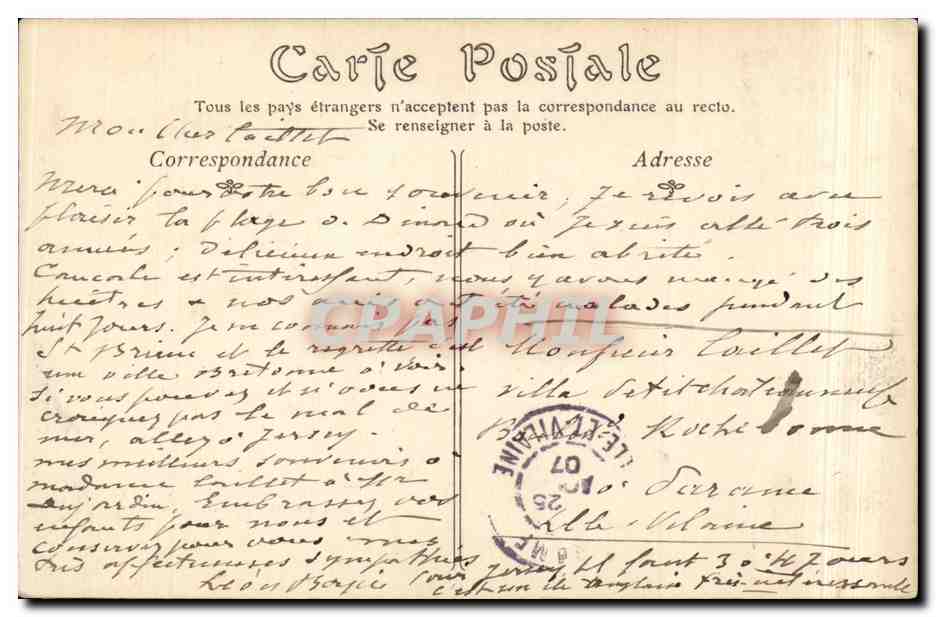 Carte Postale
Tous les pays étrangers n'acceptent pas la correspondance au recto.
Se renseigner à la poste.
Mon Cher Caillet
Correspondance
Adresse
Merci pour votre bon souvenir, je revois avec
plaisir la plage de Dinard où je suis allé trois
années; délicieux endroit bien abrité.
Cancale est intéressant, nous y avons mangé des
huîtres & nos amis ont été malades pendant
huit jours. Je ne connais pas
St Brieuc et le regrette c'est
une ville Bretonne à voir.
Si vous pouvez et si vous ne
craignez pas le mal de
mer, allez à Jersey.
mes meilleurs souvenirs à
madame Caillet à Mr
Dujardin, Embrassez vos
enfants pour nous et
conservez pour vous mes
très affectueuses sympathies
Léon
Monsieur Caillet
Villa
Rochebonne
à Paramé
Ille & Vilaine
pour Jersey il faut 3 à 4 jours
c'est une île anglaise très intéressante
ILLE-ET-VILAINE
25
07
CPAPHIL